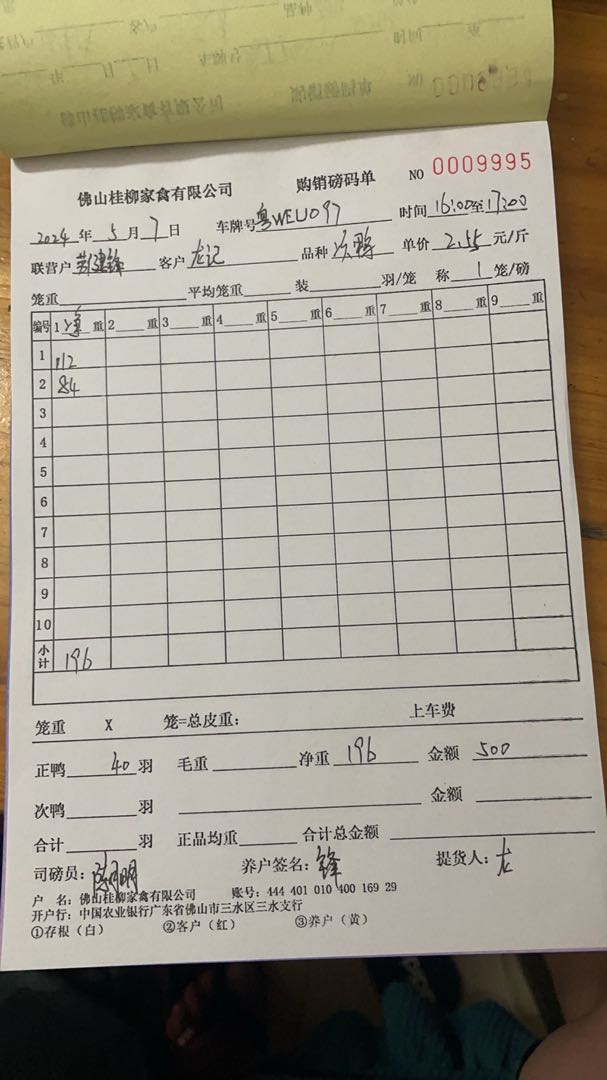 佛山桂柳家禽有限公司 购销磅码单 NO 0009995
2024年5月7日 车牌号粤WEU097 时间16:00至17:00
联营户 客户龙记 品种次鸭 单价2.55元/斤
笼重 平均笼重 装 羽/笼 称1笼/磅
编号 1净重 2重 3重 4重 5重 6重 7重 8重 9重
1 112
2 84
3
4
5
6
7
8
9
10
小计 196
笼重 X 笼=总皮重: 上车费
正鸭40羽 毛重 净重196 金额500
次鸭 羽 金额
合计 羽 正品均重 合计总金额
司磅员: 养户签名:锋 提货人:龙
户 名:佛山桂柳家禽有限公司 账号:444 401 010 400 169 29
开户行:中国农业银行广东省佛山市三水区三水支行
①存根(白) ②客户(红) ③养户(黄)